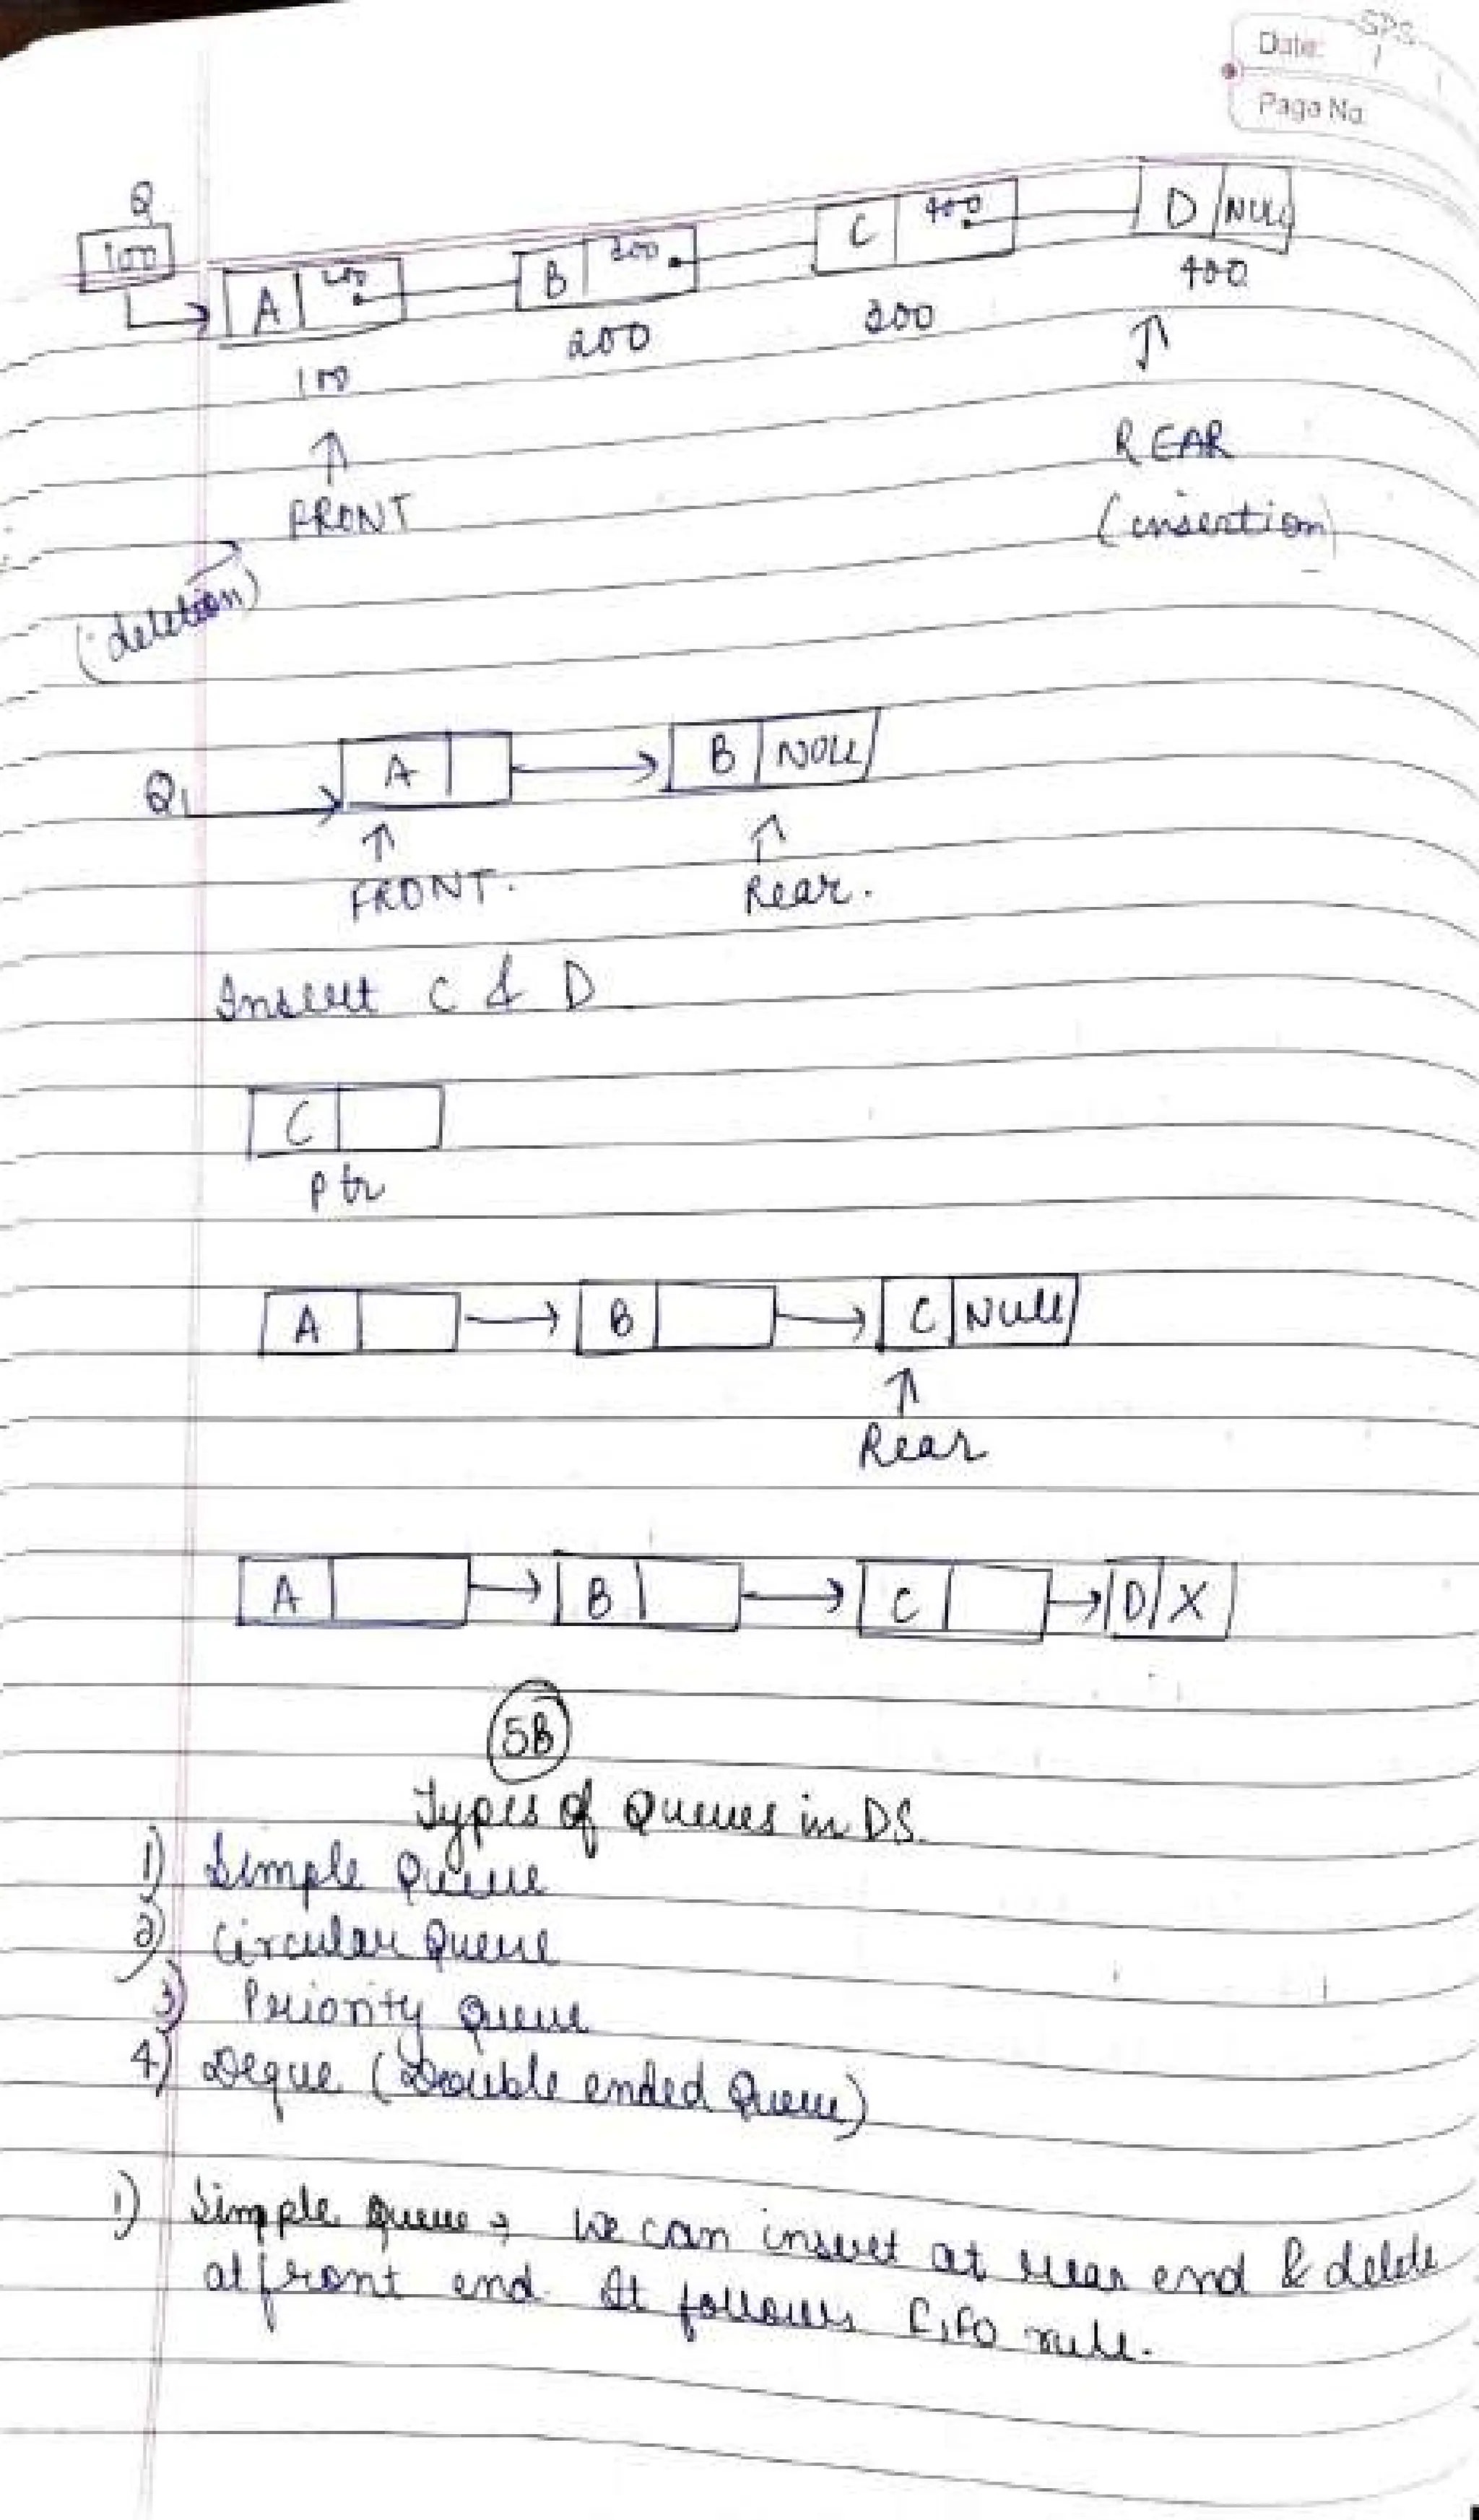 SPS
Date: / /
Page No.
Q
100
A 200 B 300 C 400 D NULL
100 200 300 400
FRONT REAR
(deletion) (insertion)
Q A B NULL
FRONT. Rear.
Insert C & D
C
ptr
A B C Null
Rear
A B C D X
5B
Types of Queues in DS.
1) Simple Queue
2) Circular Queue
3) Priority Queue
4) Deque (Double ended Queue)
1) Simple queue → We can insert at rear end & delete
at front end. It follows FIFO rule.